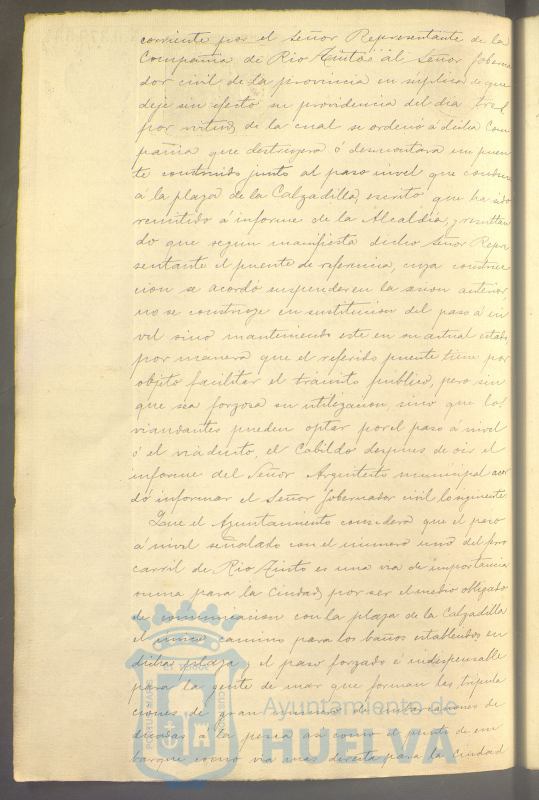 corriente por el Señor Representante de la
Compañia de Rio Tinto al Señor Goberna
dor civil de la provincia en suplica de que
deje sin efecto su providencia del dia tres
por virtud de la cual se ordenó á dicha Com
pañia que destruyera ó desmontara un puen
te construido junto al paso nivel que conduce
á la plaza de la Calzadilla, escrito que ha sido
remitido á informe de la Alcaldia, y resultan
do que segun manifiesta dicho Señor Repre
sentante el puente de referencia, cuya construc
cion se acordó suspender en la sesion anterior,
no se construye en sustitucion del paso á ni
vel sino manteniendo este en su actual estado
por manera que el referido puente tiene por
objeto facilitar el tránsito publico, pero sin
que sea forzosa su utilizacion, sino que los
viandantes pueden optar por el paso á nivel
ó el viaducto, el Cabildo despues de oir el
informe del Señor Arquitecto municipal acor
dó informar el Señor Gobernador civil lo siguiente.
Que el Ayuntamiento considera que el paso
á nivel señalado con el número uno del ferro
carril de Rio Tinto es una via de importancia
suma para la Ciudad, por ser el medio obligado
de comunicacion con la plaza de la Calzadilla
el unico camino para los baños establecidos en
dicha playa, y el paso forzado é indispensable
para la gente de mar que forman las tripula
ciones de gran número de embarcaciones de
dicadas á la pesca asi como el punto de em
barque como via mas directa para la Ciudad
Ayuntamiento de
HUELVA
PORTUS MARIS